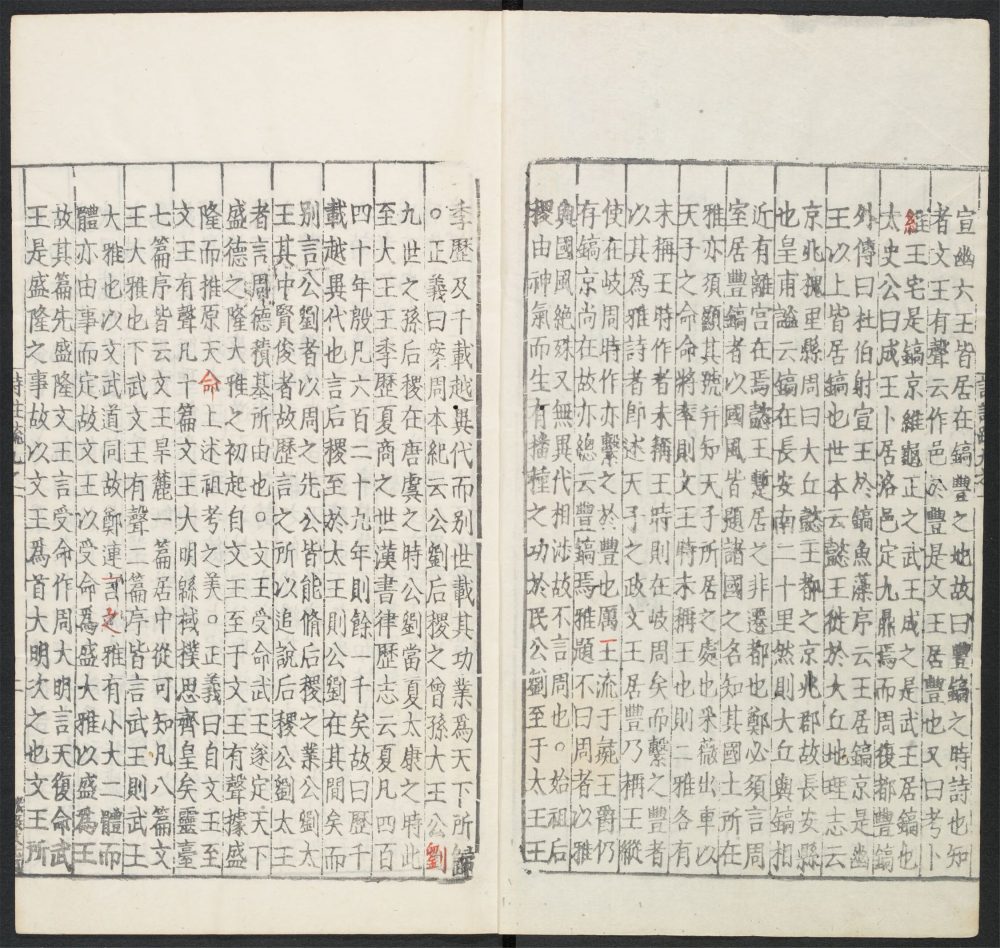 宣幽大王皆居在鎬豐之地故曰豐鎬之時詩也知
者文王有聲云作邑於豐是文王居豐也又曰考卜
維王宅是鎬京維龜正之武王成之是武王居鎬也
太史公曰成王卜居洛邑定九鼎焉而周復都豐鎬
外傳曰杜伯射宣王於鎬魚藻序云王居鎬京是幽
王以上皆居鎬也世本云懿王徙於大丘地理志云
京兆槐里縣周曰大丘懿王都之京兆郡故長安縣
也皇甫謐云鎬在長安南二十里然則大丘與鎬相
近有離宮在焉懿王蹔居之非遷都也鄭必須言周
室居豐鎬者以國風皆題諸國之名知其國土所在
雅亦須顯其號并知天子所居之處也采薇出車以
天子之命命將率則文王時未稱王也則二雅各有
未稱王時作者未稱王時則在岐周矣而繫之豐者
以其爲雅詩者即述天子之政文王居豐乃稱王縱
使在岐周時作亦繫之於豐也厲王流于彘王爵仍
存鎬京尚在故亦總云豐鎬焉雅題不曰周者以雅
與國風絕殊又無異代相涉故不言周也○始祖后
稷由神氣而生有播種之功於民公劉至于太王王
季歷及千載越異代而別世載其功業爲天下所歸
○正義曰案周本紀云公劉后稷之曾孫大王公劉
九世之孫后稷在唐虞之時公劉當夏太康之時此
至大王王季歷夏商之世漢書律歷志云夏凡四百
四十年殷凡六百二十九年則餘一千矣故曰歷千
載越異代也言后稷至於太王則公劉在其間矣而
別言公劉者以周之先公皆能脩后稷之業公劉太
王其中賢俊者故歷言之所以追說后稷公劉太王
者言周德積基所由也○文王受命武王遂定天下
盛德之隆大雅之初起自文王至于文王有聲據盛
隆而推原天命上述祖考之美○正義曰自文王至
文王有聲凡十篇文王大明緜棫樸思齊皇矣靈臺
七篇序皆云文王旱麓一篇居中從可知凡八篇文
王大雅也下武文王有聲二篇序皆言武王則武王
大雅也以文武道同故鄭連言之雅有小大二體而
體亦由事而定故文王以受命爲盛大雅以盛爲王
故其篇先盛隆文王言受命作周大明言天復命武
王是盛隆之事故以文王爲首大明次之也文王所